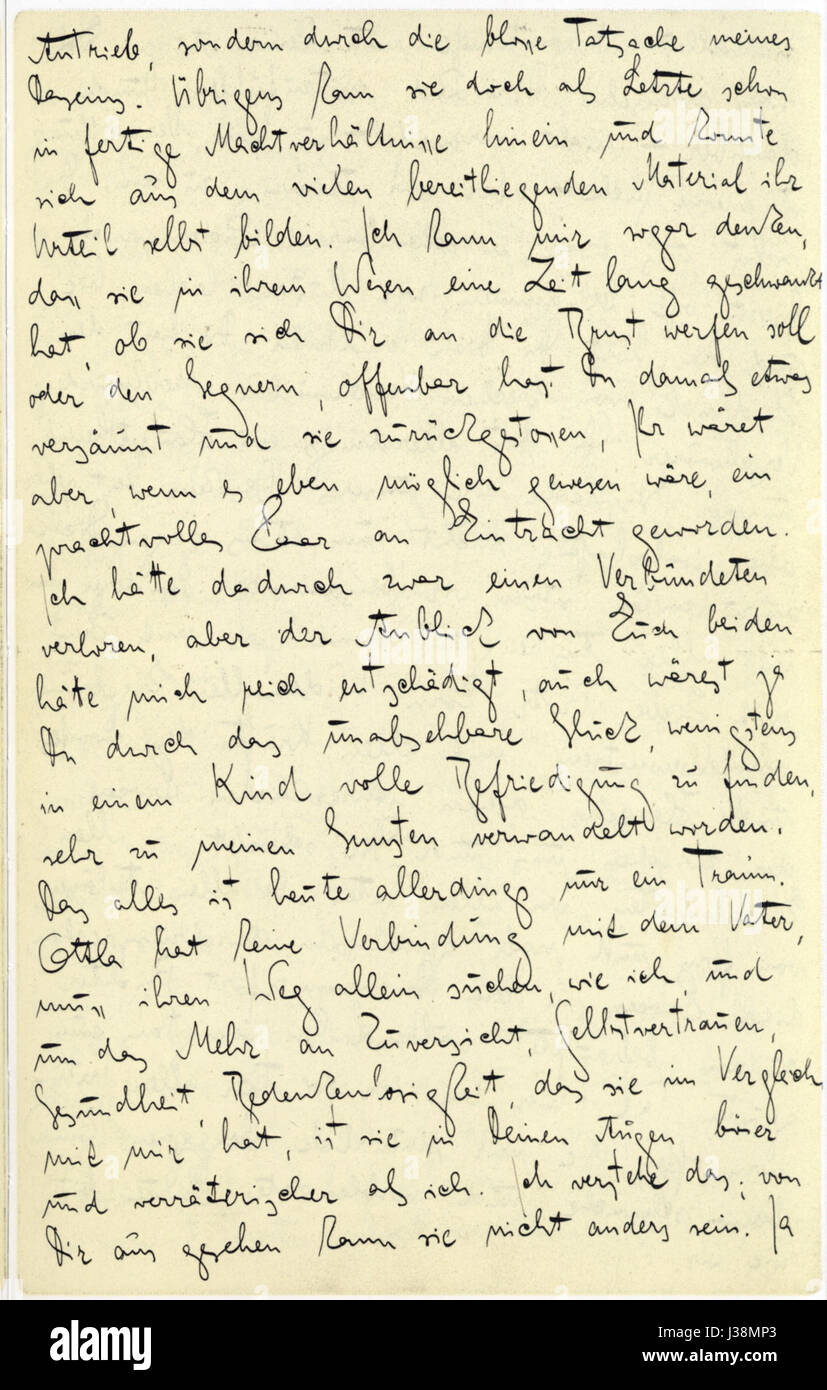 Antrieb, sondern durch die blosse Tatsache meines
Daseins. Übrigens kam sie doch als Letzte schon
in fertige Machtverhältnisse hinein und konnte
sich aus dem vielen bereitliegenden Material ihr
Urteil selbst bilden. Ich kann mir sogar denken,
dass sie in ihrem Wesen eine Zeit lang geschwankt
hat, ob sie sich Dir an die Brust werfen soll
oder den Gegnern, offenbar hast Du damals etwas
versäumt und sie zurückgestossen, Ihr wäret
aber, wenn es eben möglich gewesen wäre, ein
prachtvolles Paar an Eintracht geworden.
Ich hätte dadurch zwar einen Verbündeten
verloren, aber der Anblick von Euch beiden
hätte mich reich entschädigt, auch wärest ja
Du durch das unabsehbare Glück, wenigstens
in einem Kind volle Befriedigung zu finden,
sehr zu meinen Gunsten verwandelt worden.
Das alles ist heute allerdings nur ein Traum.
Ottla hat keine Verbindung mit dem Vater,
muss ihren Weg allein suchen, wie ich, und
um das Mehr an Zuversicht, Selbstvertrauen,
Gesundheit, Bedenkenlosigkeit, das sie im Vergleich
mit mir hat, ist sie in Deinen Augen böser
und verräterischer als ich. Ich verstehe das; von
Dir aus gesehen kann sie nicht anders sein. Ja
alamy
Image ID: J38MP3
www.alamy.com